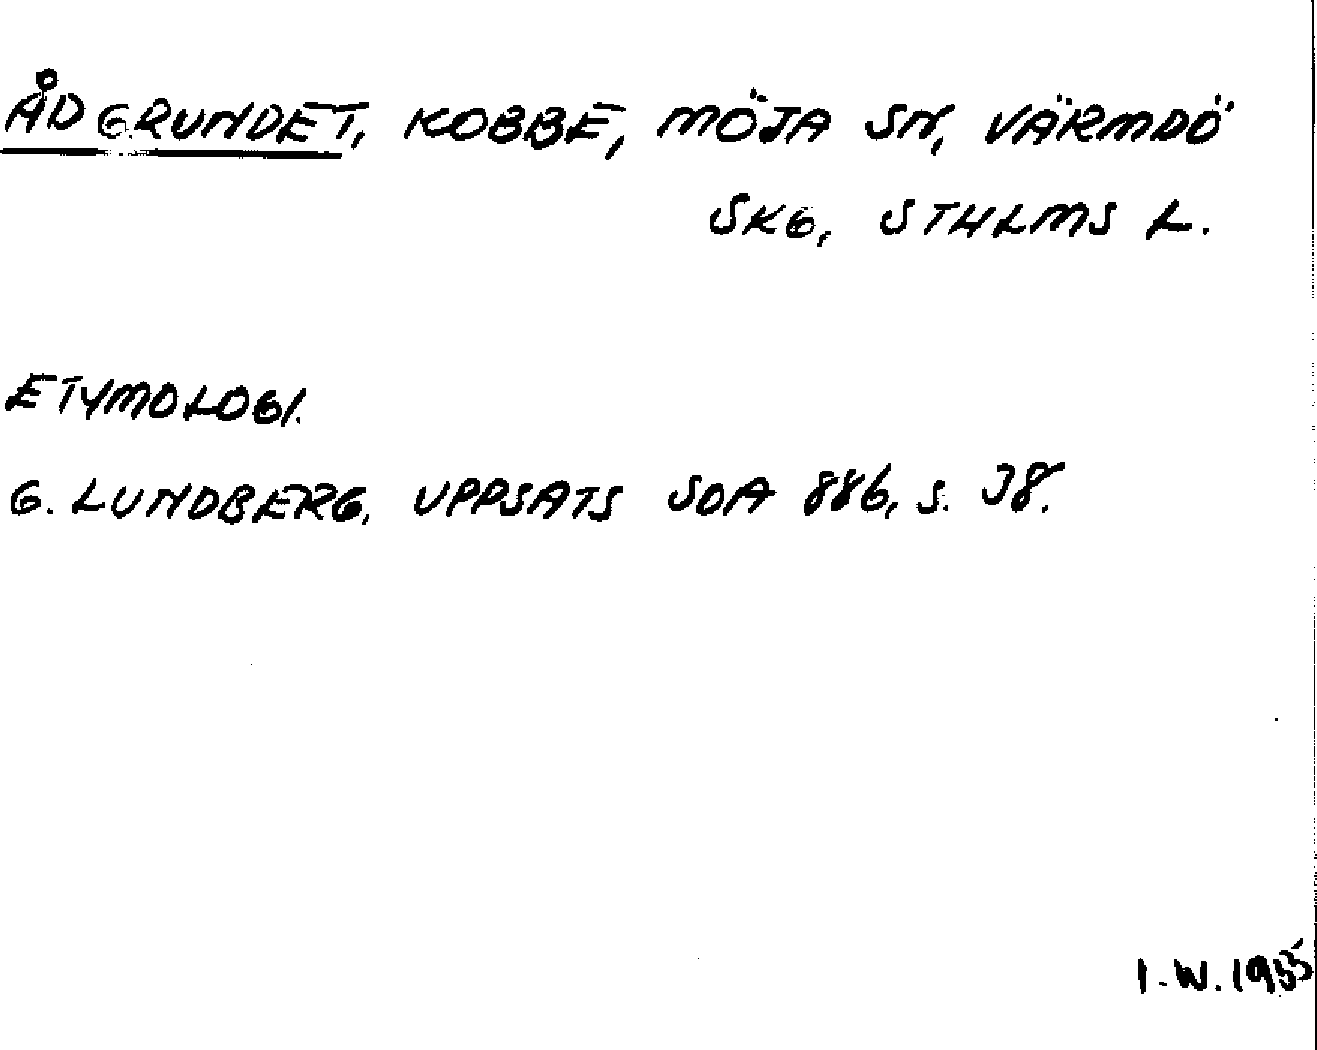 ÅDGRUNDET, KOBBE, MÖJA SN, VÄRMDÖ
SKG, STHLMS L.
ETYMOLOGI.
G. LUNDBERG, UPPSATS SOA 886, S. 38.
I.W. 1955